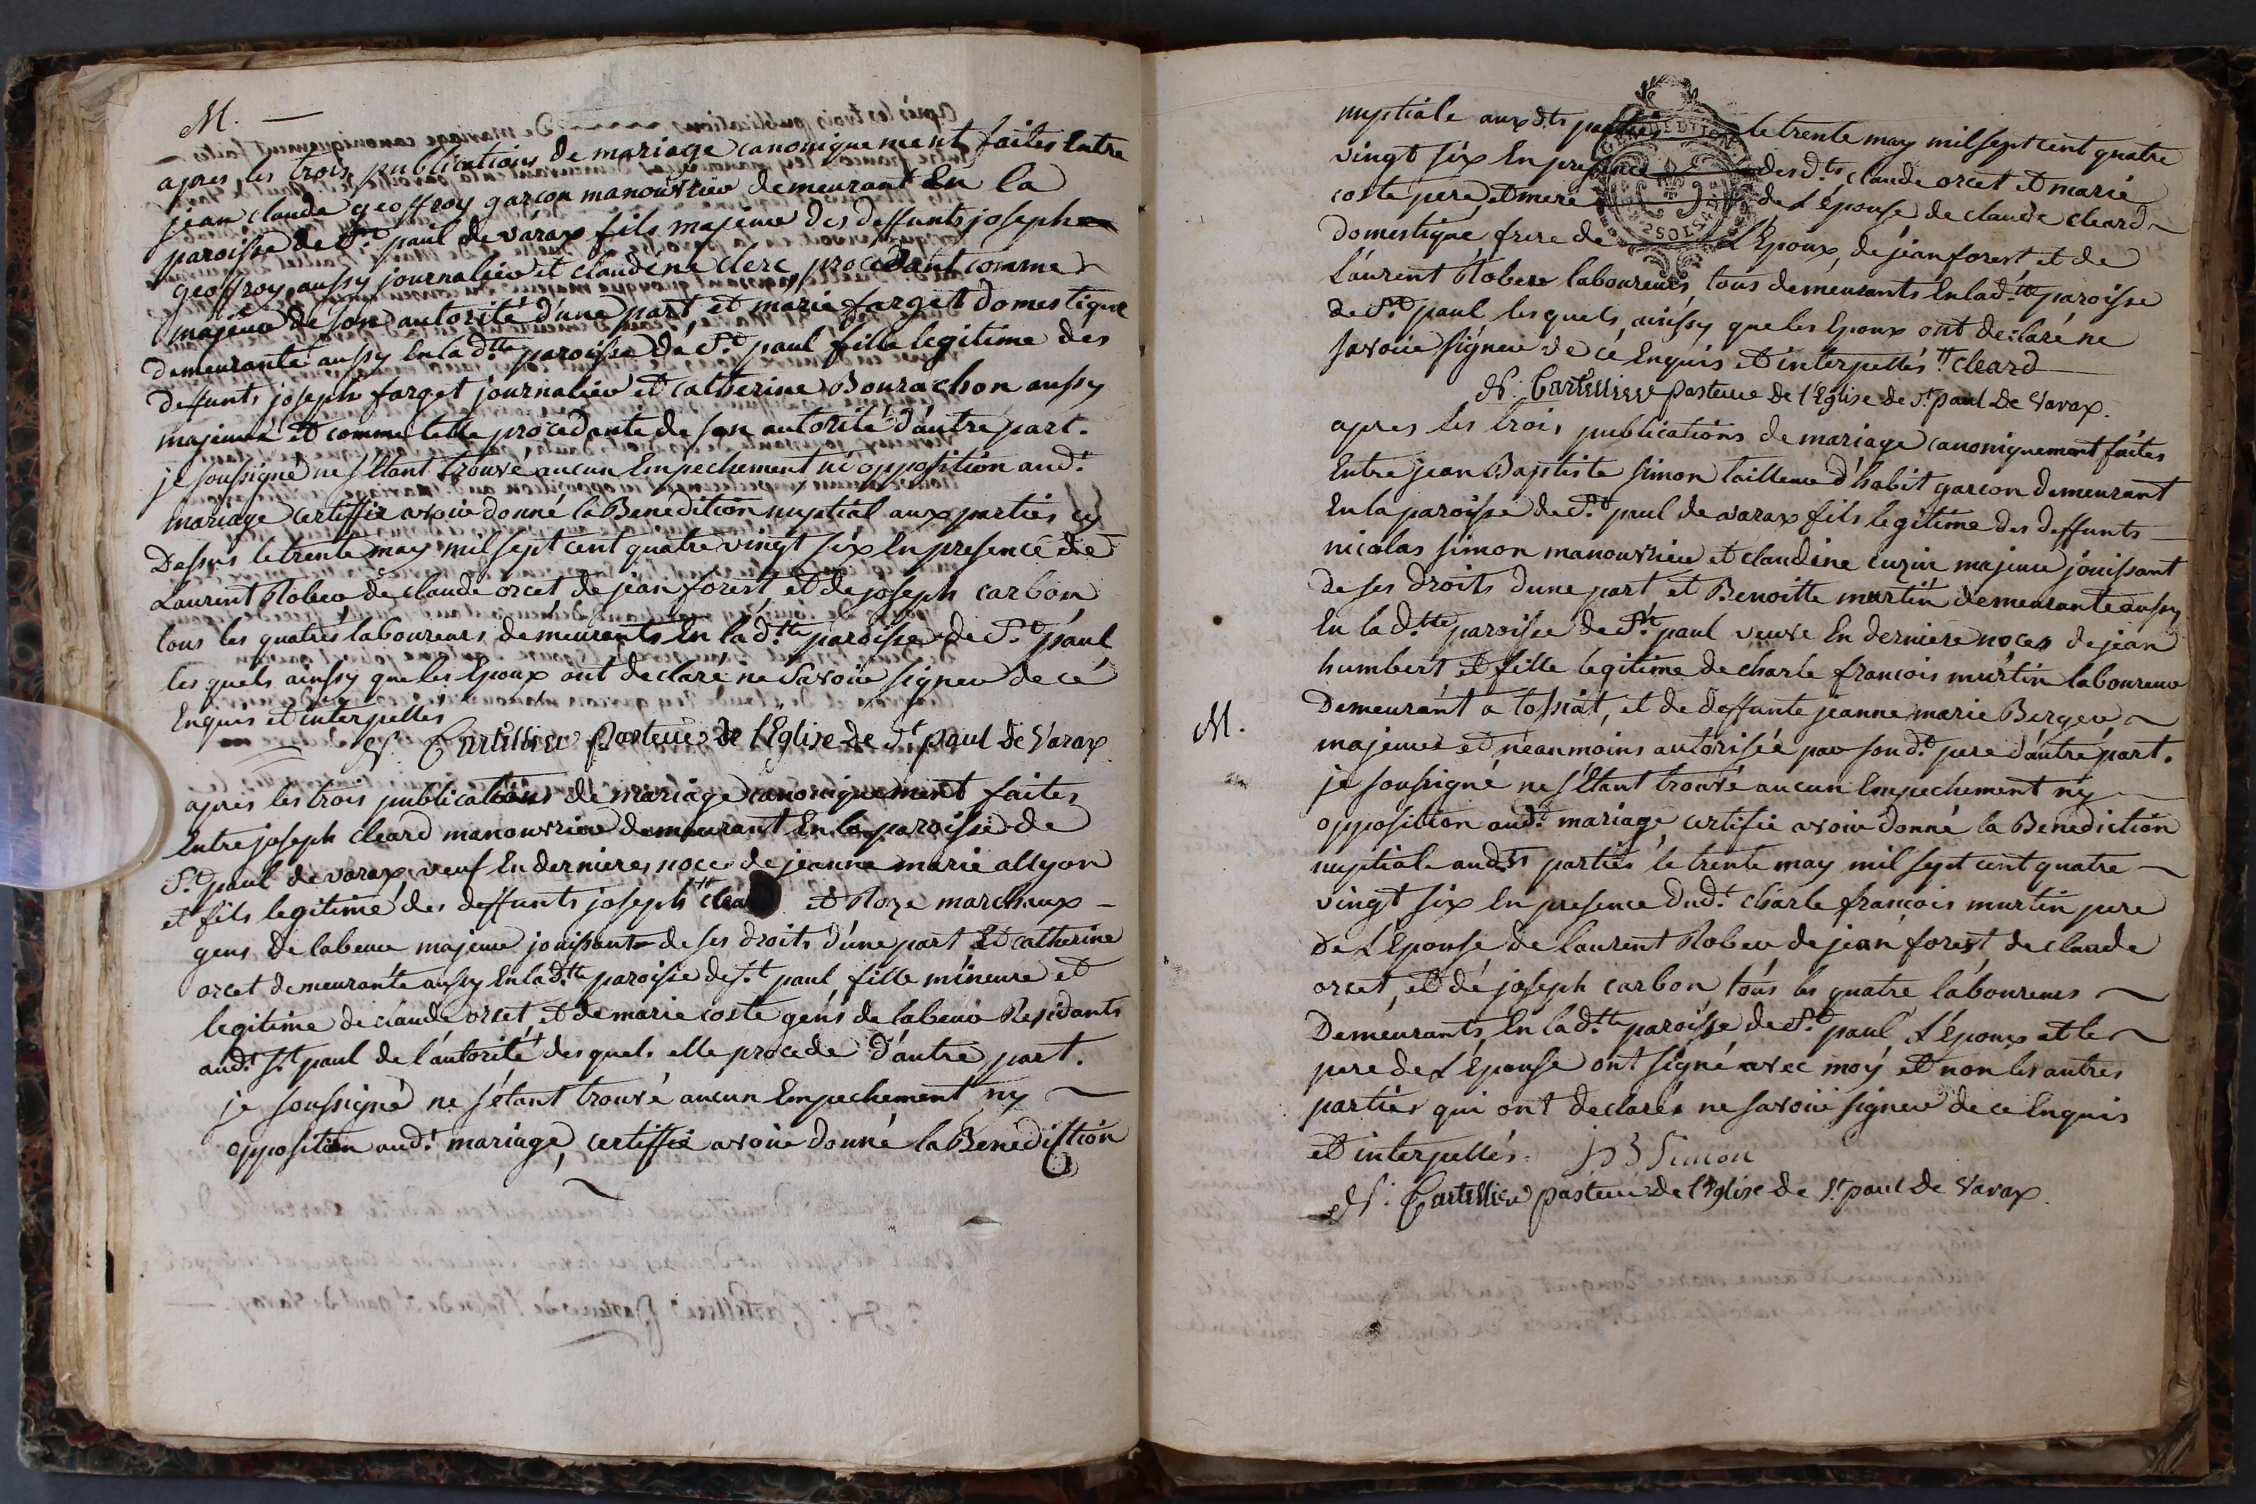 M. —
apres les trois publications de mariage canoniquement faites Entre
jean claude geoffroy garcon manouvrier demeurant En la
paroisse de St paul de varax fils majeur des deffunts joseph
geoffroy aussy journalier et claudene clerc, procedant comme
majeur de son autorité d'une part et marie farget domestique
demeurante aussy En la dtte paroisse de St paul fille legitime des
deffunts joseph farget journalier et catherine Bourachon aussy
majeure et comme telle procedante de son autorité d'autre part.
je soussigné ne s'Etant trouvé aucun Empechement ni opposition aud.t
mariage certiffie avoir donné la Benedition nuptial aux parties cy
Dessus le trente may mil sept cent quatre vingt six En presence de
Laurent Rober de claude orcet de jean forest, et de joseph carbon
tous les quatres laboureurs demeurants En la dtte paroisse de St paul
les quels ainssy que les Epoux ont declaré ne Savoir signer de cé
Enquis et interpelles
N. Cartellier Pasteur de l'Eglise de St paul de Varax
apres les trois publications de mariage canoniquement faites
Entre joseph cleard manouvrier demeurant En la paroisse de
St paul de varax, veuf En dernieres noces de jeanne marie allyon
et fils legitime des deffunts joseph tt clea et Roze marchaux —
gens de labeur majeur jouissant de ses droits d'une part, Et catherine
orcet demeurante aussy En la dtte paroisse de St paul, fille mineure et
legitime de claude orcet et de marie coste gens de labeur Residants
aud.t St paul de l'autorité des quels elle procede d'autre part.
je soussigné ne s'étant trouvé aucun Empechement ny
opposition aud.t mariage, certiffie avoir donné la Benediction
nuptiale aux dts parties le trente may mil sept cent quatre
vingt six En presence des dts claude orcet et marie
coste pere et mere de L'Epouse de claude cleard
Domestique frere de L'Epoux, de jean forest et de
Laurent Rober laboureurs tous demeurants En la d.tte paroisse
de St paul les quels, ainssy que les Epoux ont declaré ne
savoir signer de cé Enquis et interpellés tt cleard
N. Cartellier pasteur de l'Eglise de St paul De Varax.
apres les trois publications de mariage canoniquement faites
Entre jean Baptiste Simon tailleur d'habit garcon demeurant
En la paroisse de St paul de varax fils legitime des deffunts
nicolas simon manouvrier et claudine cuzin majeur jouissant
de ses droits d'une part et Benoitte martin demeurante aussy
En la d.tte paroisse de St paul veuve En derniere noces de jean
humbert et fille legitime de charle françois martin laboureur
Demeurant a tossiat, et de deffunte jeanne marie Berger
M.
majeure et néanmoins autorisée par son d.t pere d'autre part.
je soussigné ne s'Etant trouvé aucun Empechement ny
opposition aud.t mariage, certifie avoir donné la Benediction
nuptiale aud.ts parties le trente may mil sept cent quatre
vingt six En presence dud.t charle françois martin pere
de L'Epouse, de laurent Rober de jean forest de claude
orcet, et dé joseph carbon, tous les quatre laboureurs
Demeurants En la d.tte paroisse de St paul L'époux et le
pere de L'Epouse ont signé avec moy et non les autres
parties qui ont declarés ne savoir signer de ce Enquis
et interpellés. J B Simon
N. Cartellier pasteur de l'Eglise de St paul de Varax.